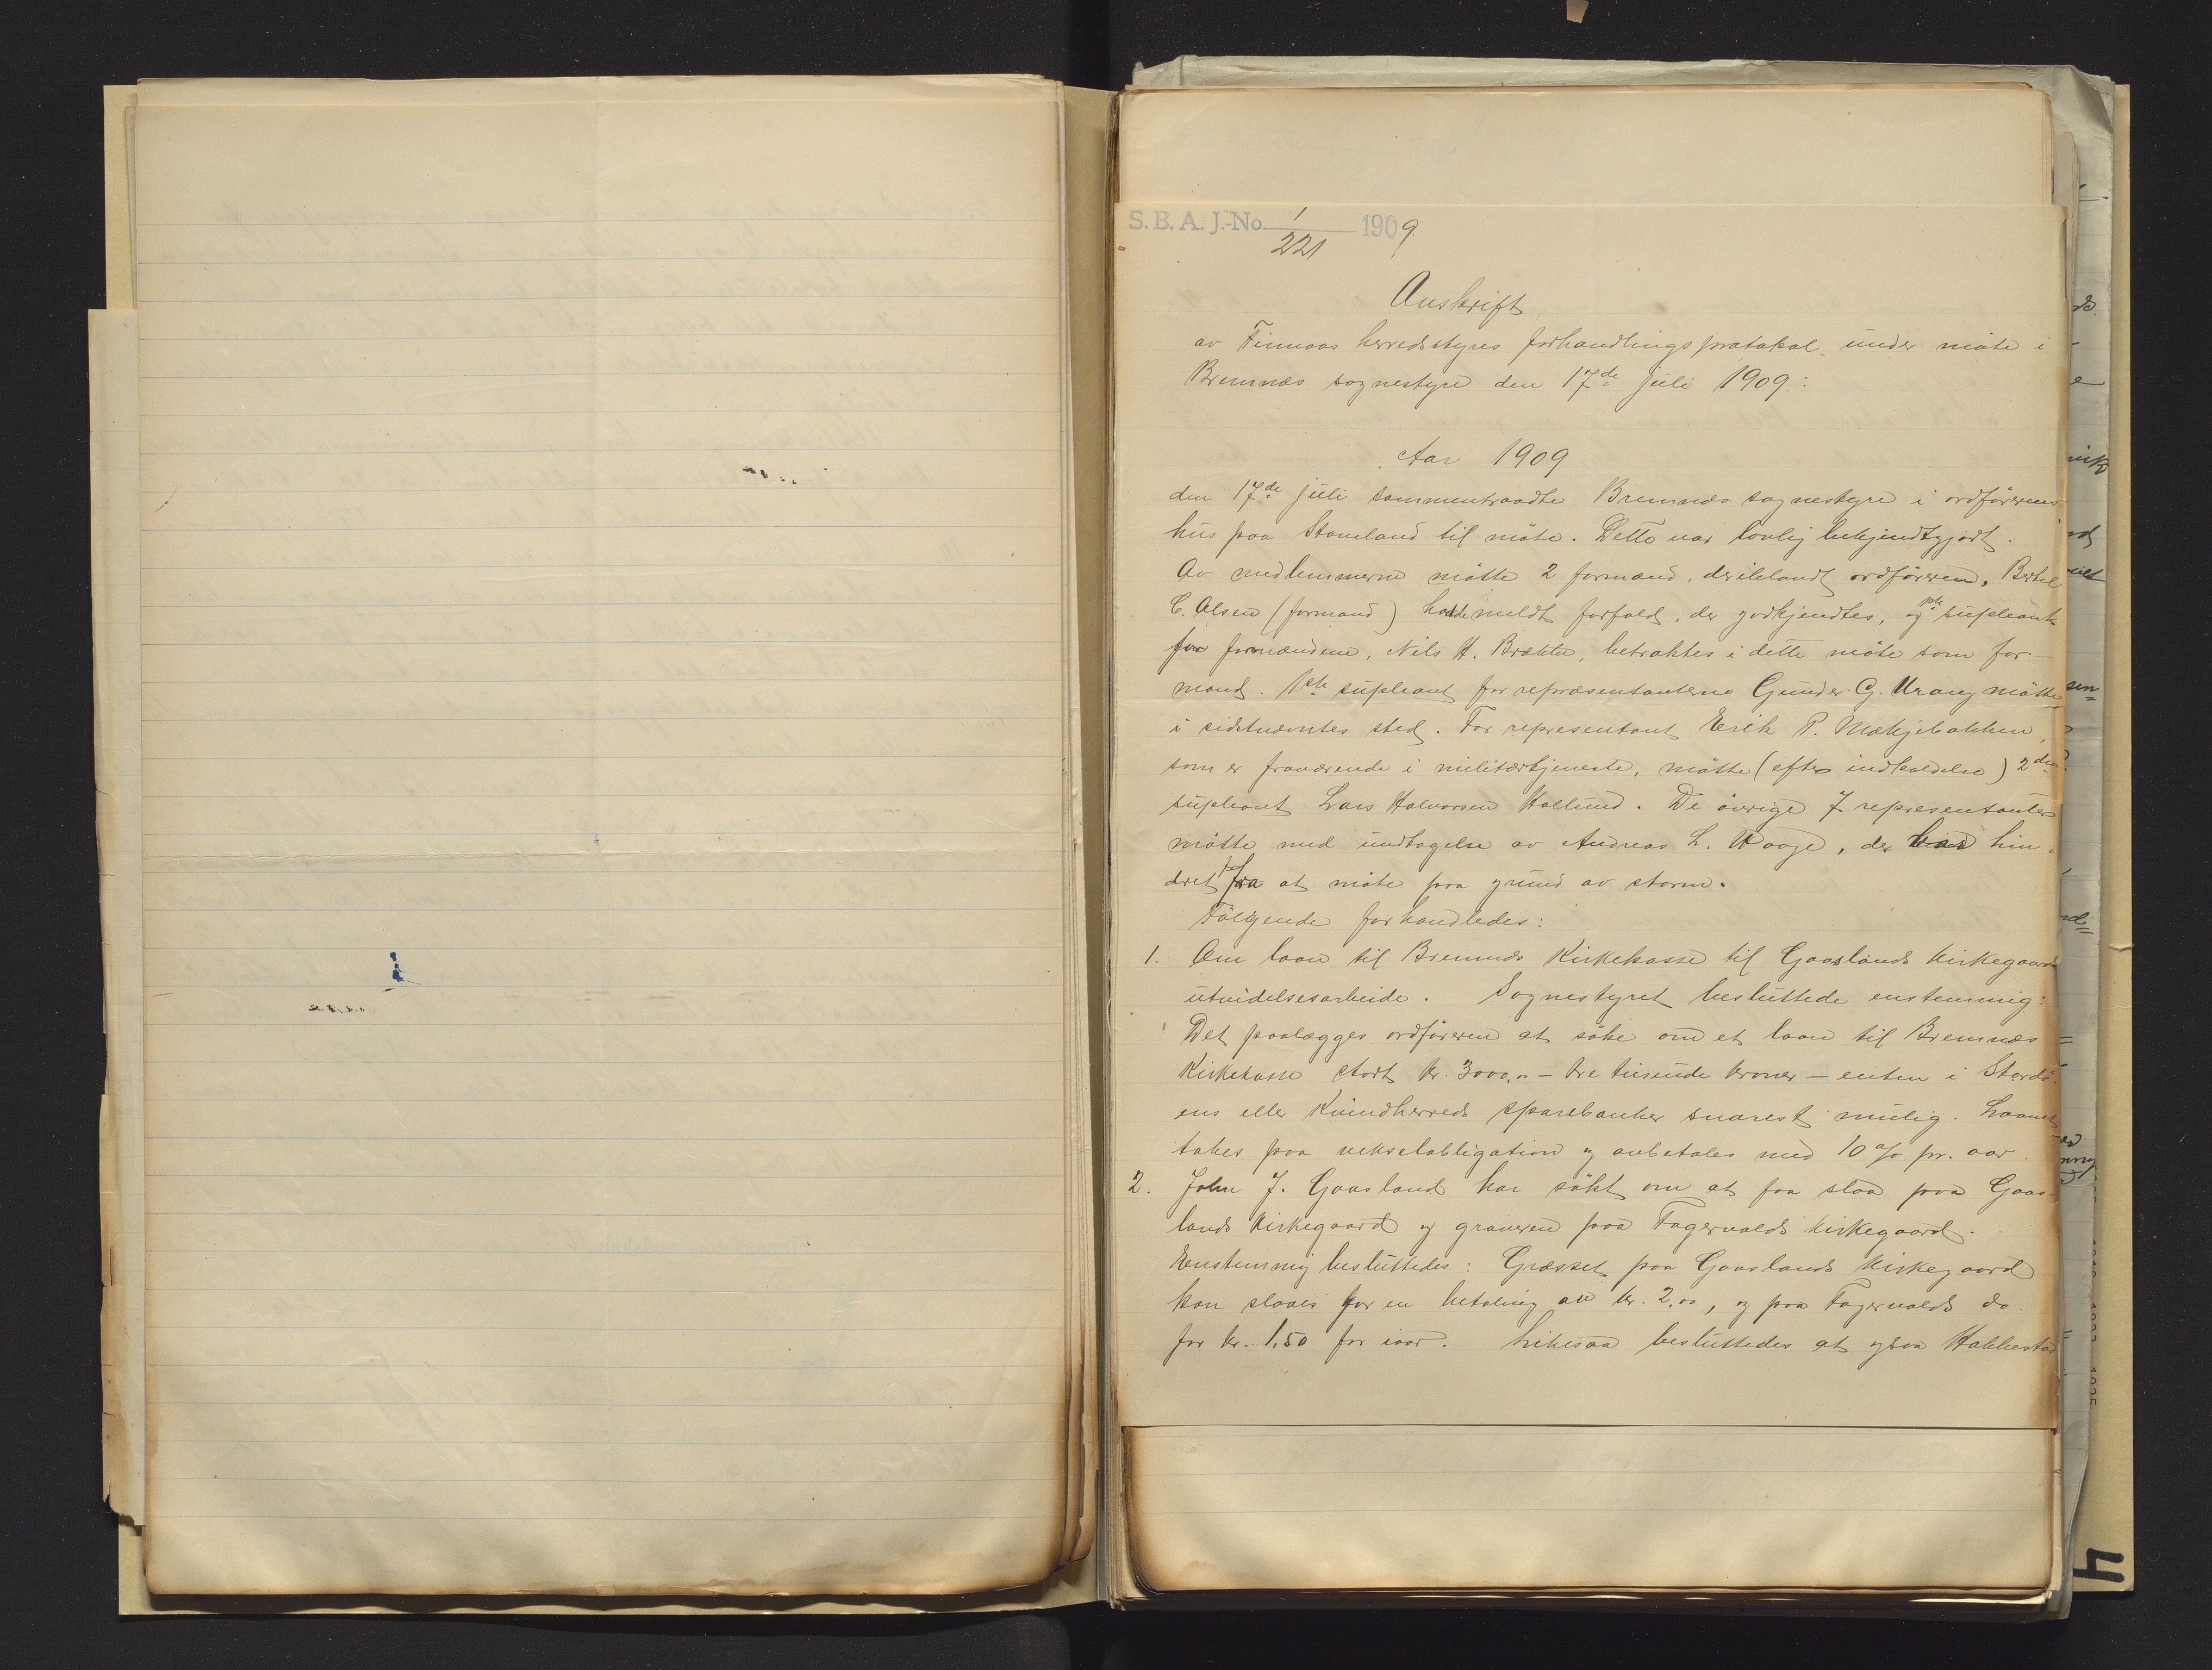 S. B. A. J.-No. 1/221 1909
Avskrift
av Finnaas herredsstyres forhandlingsprotokol under møte i
Bremnæs sognestyre den 17de juli 1909:
Aar 1909
den 17de juli sammentraadte Bremnæs sognestyre i ordførerens
hus paa Stavland til møte. Dette var lovlig bekjendtgjort.
Av medlemmerne møtte 2 formænd, deriblandt ordføreren. Bertel
C. Olsen (formand) hadde meldt forfald, der godkjendtes, og 1ste supleant
for formændene, Nils H. Brække, betraktes i dette møte som for-
mand. 1ste supleant for repræsentanterne Gunder G. Urang møtte
i sidstnævntes sted. For representant Erik P. Mækjebakken,
som er fraværende i militærtjeneste, møtte (efter indkaldelse) 2den
supleant Lars Halvorsen Hollund. De øvrige 7 representanter
møtte med undtagelse av Andreas L. Waage, der var hin-
dret fra at møte paa grund av storm.
Følgende forhandledes:
1. Om laan til Bremnæs Kirkekasse til Gaaslands kirkegaards
utvidelsesarbeide. Sognestyret besluttede enstemmig:
Det paalægges ordføreren at søke om et laan til Bremnæs
Kirkekasse stort kr. 3000,00 – tre tusinde kroner – enten i Stordø-
ens eller Kvindherreds sparebanker snarest mulig. Laanet
takes paa vekselobligation og avbetales med 10 % pr. aar.
2. John J. Gaasland har søkt om at faa slaa paa Gaas-
lands kirkegaard og graveren paa Fagervolds kirkegaard.
Enstemmig besluttedes: Græsset paa Gaaslands kirkegaard
kan slaaes for en betaling av kr. 2,00, og paa Fagervolds do.
for kr. 1,50 for iaar. Likesaa besluttedes at ogsaa Hallestad
4